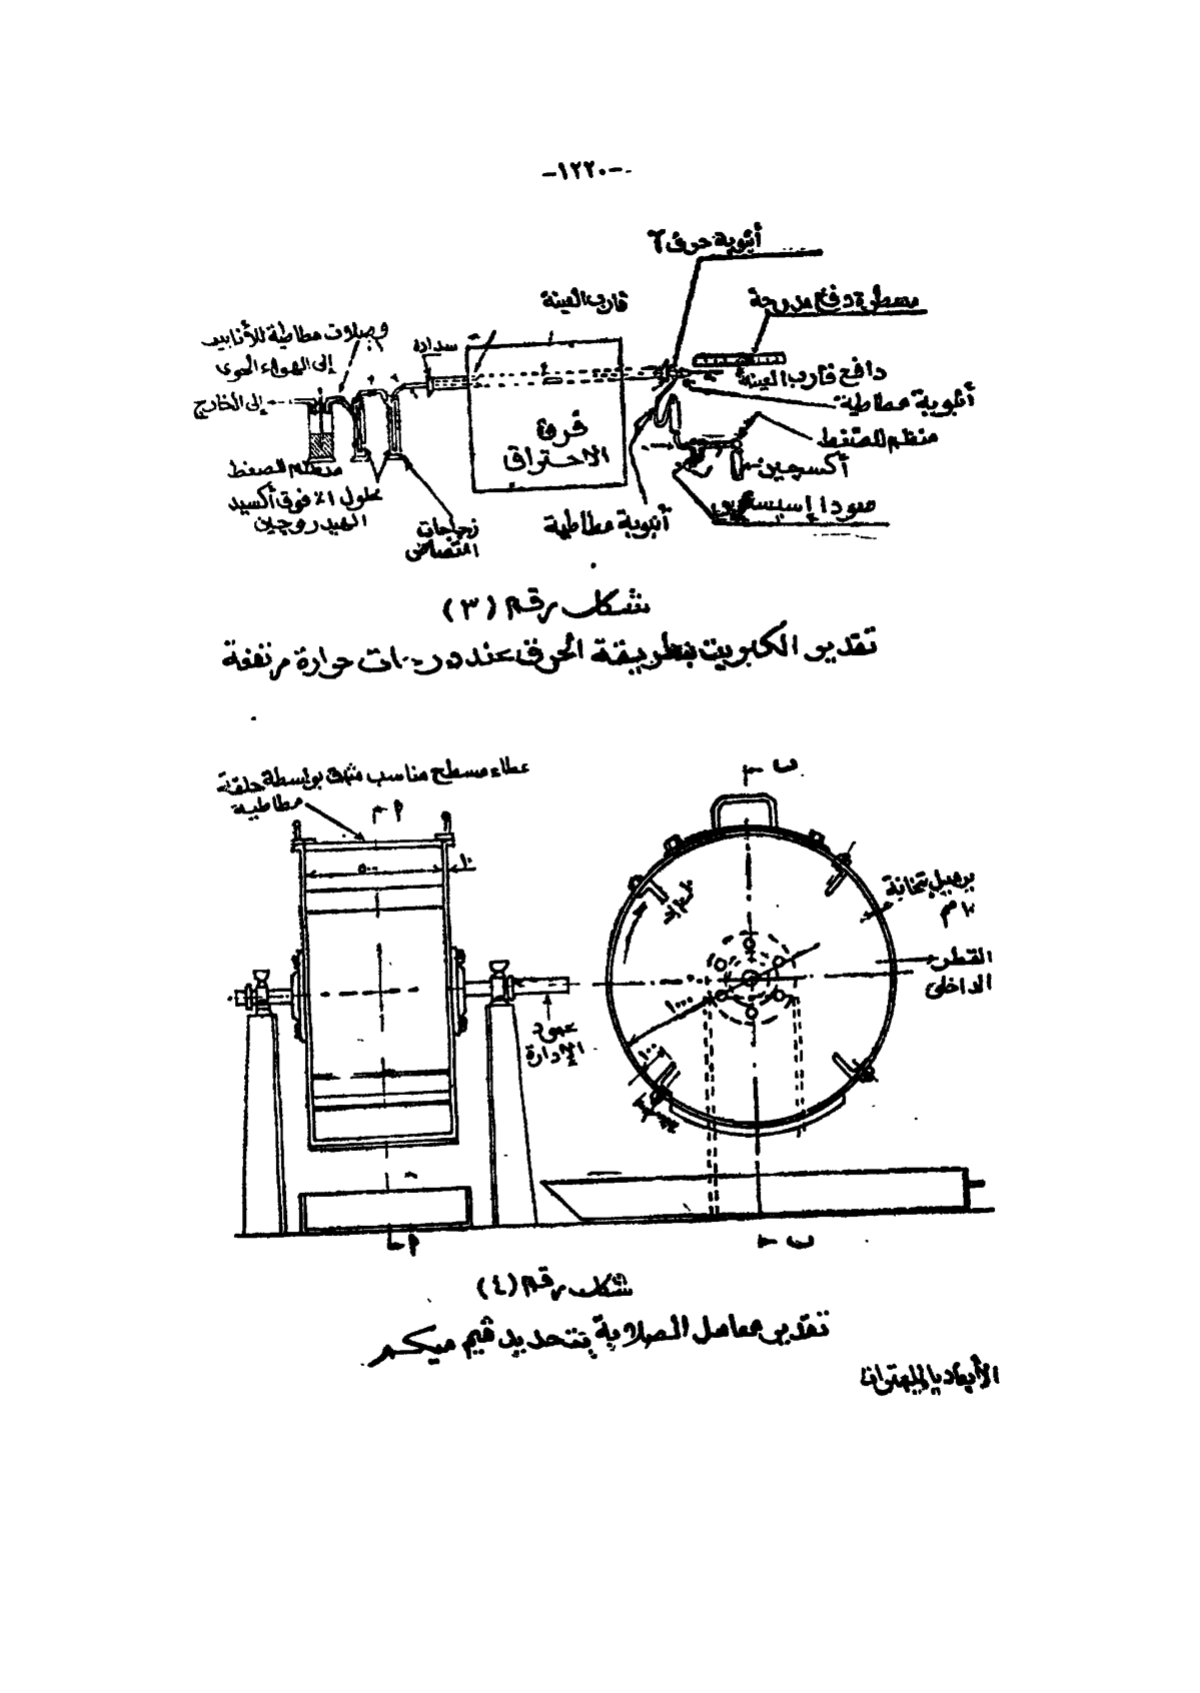 -١٢٢٠-
أنبوبة حرف T
مسطرة دفع مدرجة
قارب العينة
وصلات مطاطية للأنابيب
سدادة
إلى الهواء الجوى
دافع قارب العينة
إلى الخارج
أنبوبة مطاطية
فرن
الاحتراق
منظم للضغط
أكسجين
منظم للضغط
محلول ١٪ فوق أكسيد
الهيدروجين
زجاجات
امتصاص
أنبوبة مطاطية
صودا
شكل رقم (٣)
تقدير الكبريت بطريقة الحرق عند درجات حرارة مرتفعة
غطاء مسطح مناسب مثبت بواسطة حلقة
مطاطية
أ
ب
٥٠٠
١٠
برميل بتخانة
مم
القطر
الداخلى
١٠٠٠
عمود
الإدارة
١٠٠
أ
ب
شكل رقم (٤)
تقدير معامل الصلابة بتحديد قيم ميكم
الأبعاد بالمليمترات